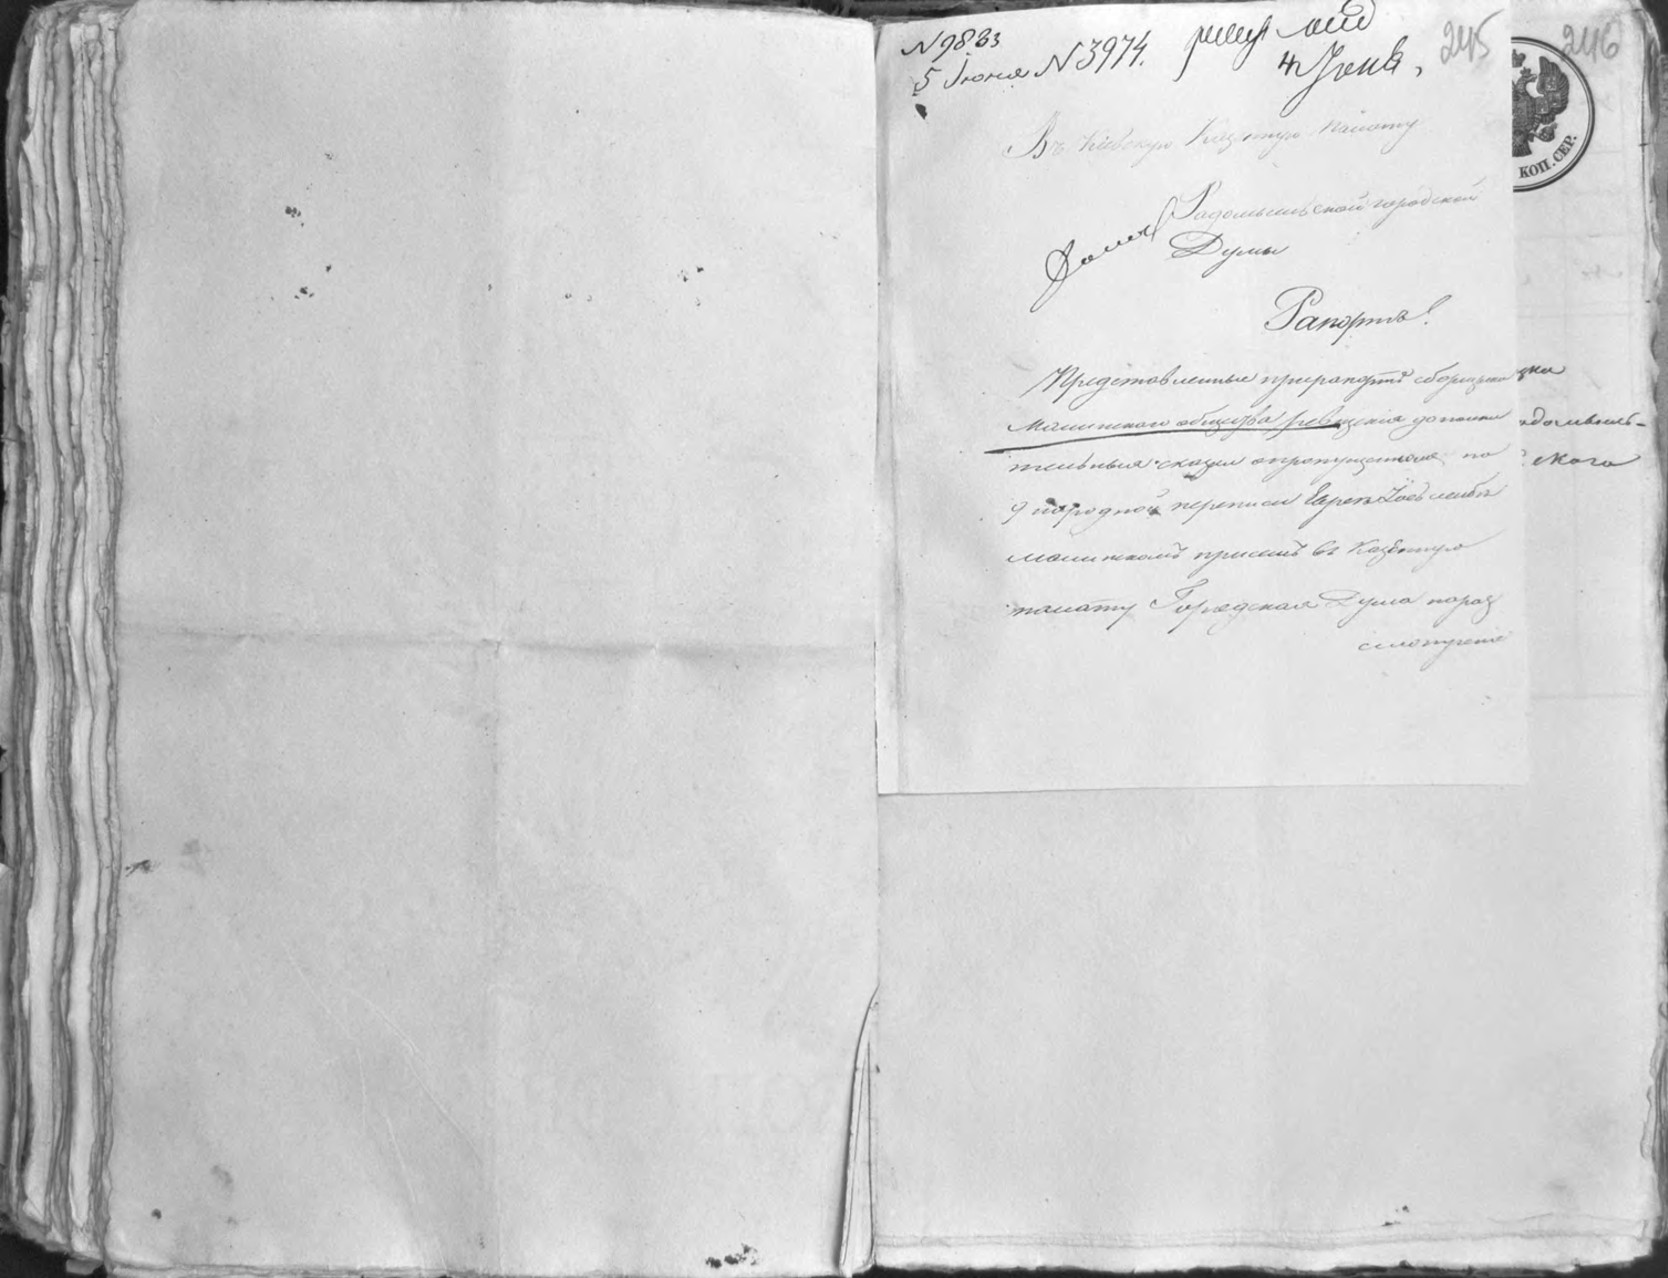 N 9833
5 Июня N 3974.
4 Июня,
245
246
КОП. СЕР.
Въ Кіевскую Казенную Палату
Радомысльской городской
Думы
Рапортъ!
Представленные при рапортѣ сборщика
Малинского общества ревизскія дополни
тельныя сказки о пропущенномъ по
9 народной переписи Евреѣ
малинскомъ въ Казенную
палату Городская Дума по раз
смотреніе
ского